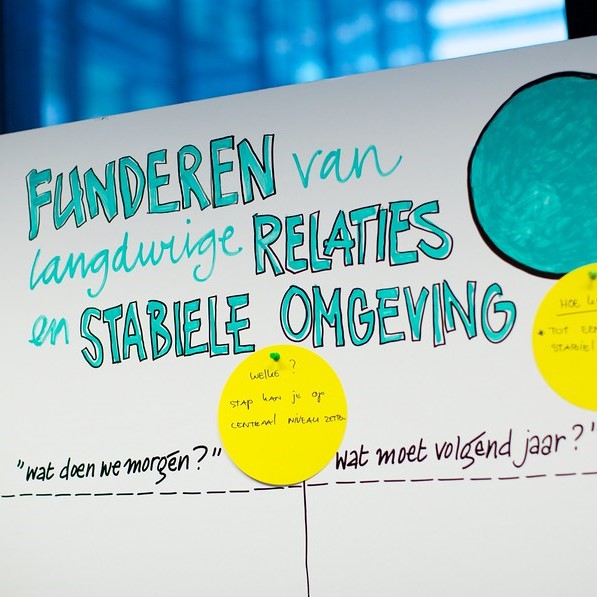 FUNDEREN van
langdurige RELATIES
en STABIELE OMGEVING
HOE K
TOT EEN
STABIEL
WELKE ?
STAP KAN je OP
CENTRAAL NIVEAU ZETTEN
"wat doen we morgen?"
wat moet volgend jaar?"